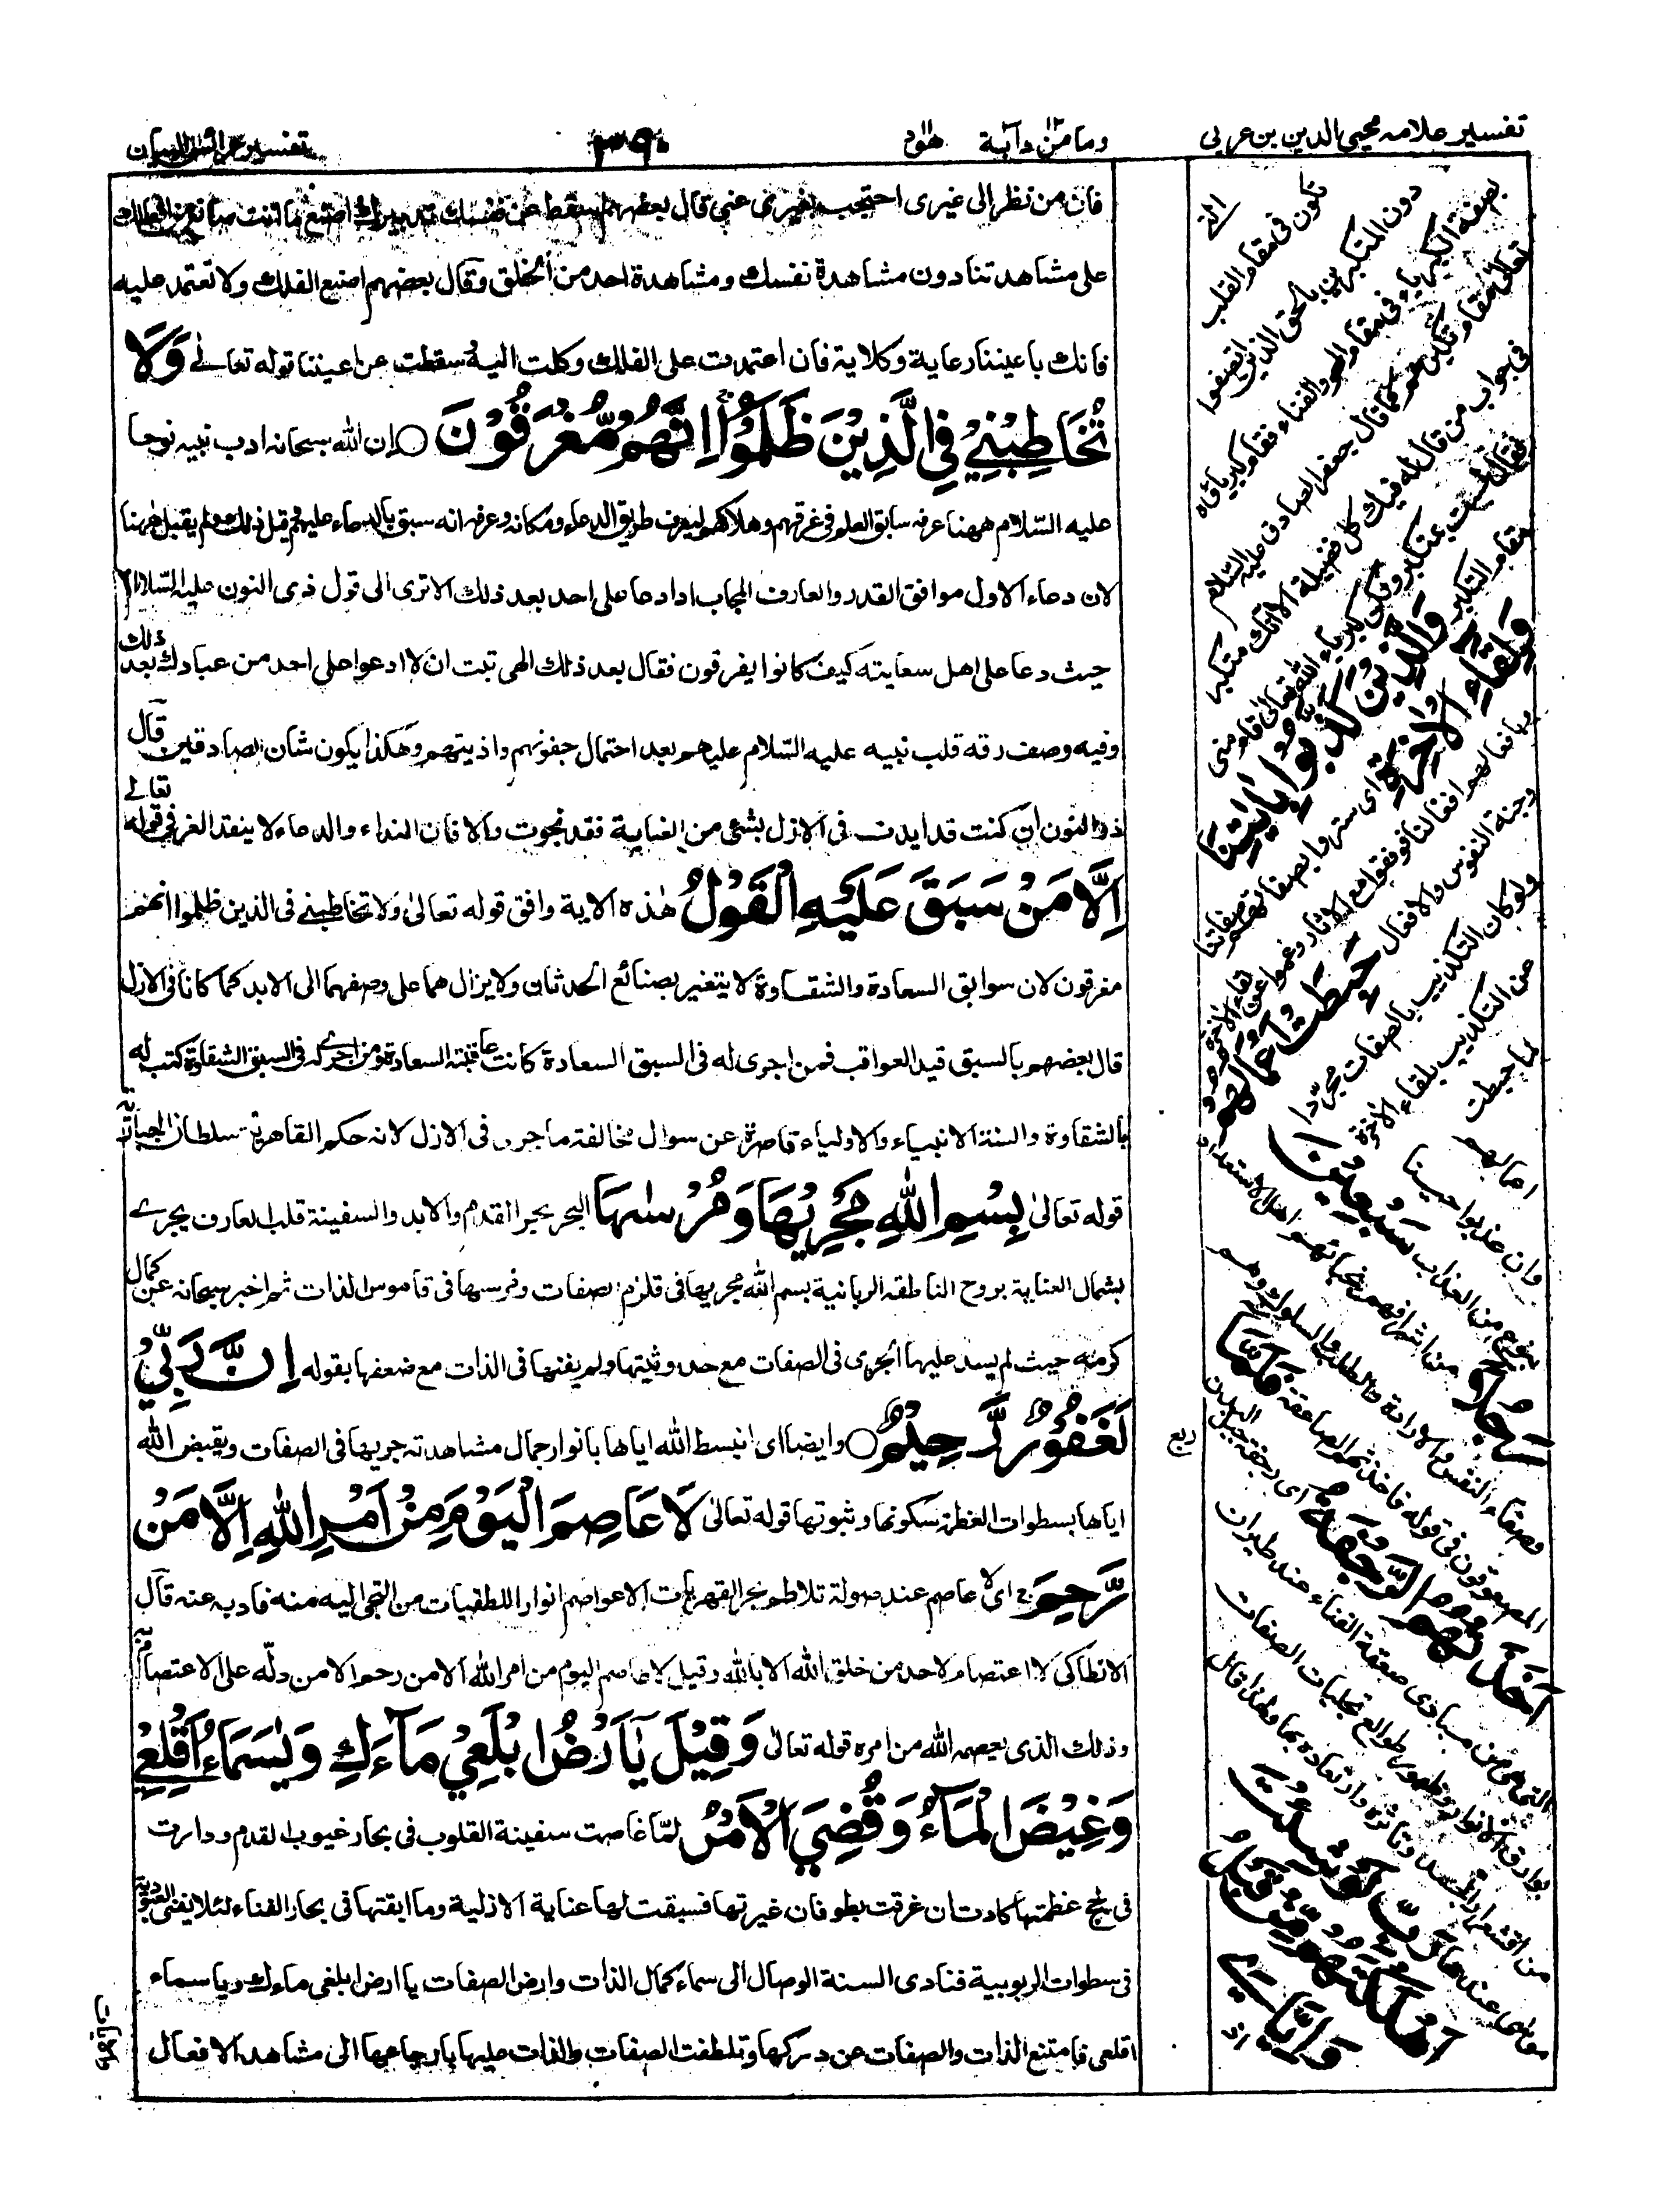 تفسير علامه محيي الدين بن عربي
وما من دآبة هود
٣٩٠
تفسير عرائس البيان
فان من نظر الى غيرى احتجب بغيرى عنى قال بعضهم اسقط عن نفسك تدبيرك اصنع ما انت صانع من الفلك
على مشاهدتنا دون مشاهدة نفسك ومشاهدة احد من الخلق وقال بعضهم اصنع الفلك ولا تعتمد عليه
فانك باعيننا رعاية وكلاية فان اعتمدت على الفلك وكلت اليه وسقطت عن اعيننا قوله تعالى وَلَا
تُخَاطِبْنِيْ فِي الَّذِيْنَ ظَلَمُوْا اِنَّهُمْ مُّغْرَقُوْنَ ○ ان الله سبحانه ادب نبيه نوحا
عليه السّلام ههنا عرفه سابق العلم فى غرقهم وهلاكهم ليعرف طريق الدعاء ومكانه وعرفه انه سبق بالدعاء عليهم قبل ذلك ولم يقبل ههنا
لان دعاء الاول موافق القدر والعارف المجاب اذا دعا على احد بعد ذلك الا ترى الى قول ذى النون عليه السّلام
حيث دعا على اهل سعايته كيف كانوا يغرقون فقال بعد ذلك الهى تبت ان لا ادعوا على احد من عبادك بعد ذلك
وفيه وصف رقه قلب نبيه عليه السّلام عليهم بعد احتمال جفوتهم واذيتهم وهكذا يكون شان الصادقين قال
ذو النون ان كنت قد ايدت فى الازل بشئ من العناية فقد نجوت والا فان النداء والدعاء لا ينقذ الغرقى قوله تعالى
اِلَّا مَنْ سَبَقَ عَلَيْهِ الْقَوْلُ هٰذه الاية وافق قوله تعالىٰ ولا تخاطبنى فى الذين ظلموا انهم
مغرقون لان سوابق السعادة والشقاوة لا يتغير بصنائع الحدثان ولا يزال هما على وصفهما الى الابد كما كانا فى الازل
قال بعضهم بالسبق قيد العواقب فمن اجرى له فى السبق السعادة كانت عاقبته السعادة ومن اجرى له فى السبق الشقاوة كتب له
بالشقاوة والسنة الانبياء والاولياء قاصرة عن سوال مخالفة ما جرى فى الازل لانه حكم القاهرية سلطان الجبانية
قوله تعالىٰ بِسْمِ اللهِ مَجْرٖىهَا وَمُرْسٰىهَا البحر بحر القدم والابد والسفينة قلب العارف يجرى
بشمال العناية بروح الناطقه الربانية بسم الله مجريها فى قلزم الصفات ومرسها فى قاموس الذات ثم اخبر سبحانه عن كمال
كرمه حيث لم يسد عليها الجرى فى الصفات مع حدوثيتها ولم يفنها فى الذات مع ضعفها بقوله اِنَّ رَبِّيْ
لَغَفُوْرٌ رَّحِيْمٌ ○ وايضا اى انبسط الله اياها بانوار جمال مشاهدته جريها فى الصفات وبقبض الله
اياها بسطوات العظمة سكونها وثبوتها قوله تعالىٰ لَا عَاصِمَ الْيَوْمَ مِنْ اَمْرِ اللهِ اِلَّا مَنْ
رَّحِمَ ج اى لا عاصم عند صولة تلاطم بحر القهريات الا عواصم انوار اللطفيات من التجى اليه منه فاد به عنه قال
الانطاكى لا اعتصام لاحد من خلق الله الا بالله وقيل لا عاصم اليوم من امر الله الا من رحم الا من دلّه على الاعتصام به
وذلك الذى يعصمه الله من امره قوله تعالىٰ وَقِيْلَ يٰٓاَرْضُ ابْلَعِيْ مَآءَكِ وَيٰسَمَآءُ اَقْلِعِيْ
وَغِيْضَ الْمَآءُ وَقُضِيَ الْاَمْرُ لمّا غاصت سفينة القلوب فى بحار غيوب القدم ودارت
فى لجج عظمتها كادت ان غرقت بطوفان غيرتها فسبقت لها عناية الازلية وما ابقتها فى بحار الفناء لئلا يفنى العبودية
فى سطوات الربوبية فنادى السنة الوصال الى سماء كمال الذات وارض الصفات يا ارض ابلغى ماءك ويا سماء
اقلعى فامتنع الذات والصفات عن دركها وتلطفت الصفات والذات عليها بارجاعها الى مشاهد الافعال
تكون فى مقام القلب
دون المتكبرين بالحق الذين اتصفوا
بصفة الكبرياء فى مقام المحو والفناء فقام كبرياؤه
تعالى مقام تكبرهم كما قال جعفر الصادق عليه السّلام
فى جواب من قال له فيك كل فضيلة الا انك متكبر
فقال لست بمتكبر ولكن كبرياء الله تعالىٰ قام منى
مقام التكبر وَالَّذِيْنَ كَذَّبُوْا بِاٰيٰتِنَا
وَلِقَآءِ الْاٰخِرَةِ اى ستروا بصفاتهم صفاتنا
وبافعالهم افعالنا فوقفوا مع الاثار وعموا عن لقاء الاخرة
وجنة النفوس والافعال حَبِطَتْ اَعْمَالُهُمْ
ولو كان التكذيب بالصفات مجرّدا
عن التكذيب بلقاء الاخرة
لما حبطت
اعمالهم
وان عذبوا حينا
بنوع من العذاب سَبْعِيْنَ
رَجُلًا من اشرافهم نجبائهم اهل الاستعداد
وصفاء النفس والارادة والطلب والسلوك وهم
المصعوقون فى قوله فاخذتهم الصاعقة فَلَمَّآ
اَخَذَتْهُمُ الرَّجْفَةُ اى رجفة جبل البدن
التى هى من مبادى صعقة الفناء عند طيران
بوارق الانوار وظهور طوالع تجليات الصفات
من اقشعرار الجسد وتاثره وارتعاده بها ولهذا قال
موسى عندها رَبِّ لَوْ شِئْتَ
اَهْلَكْتَهُمْ مِّنْ قَبْلُ
وَاِيَّايَ
ربع